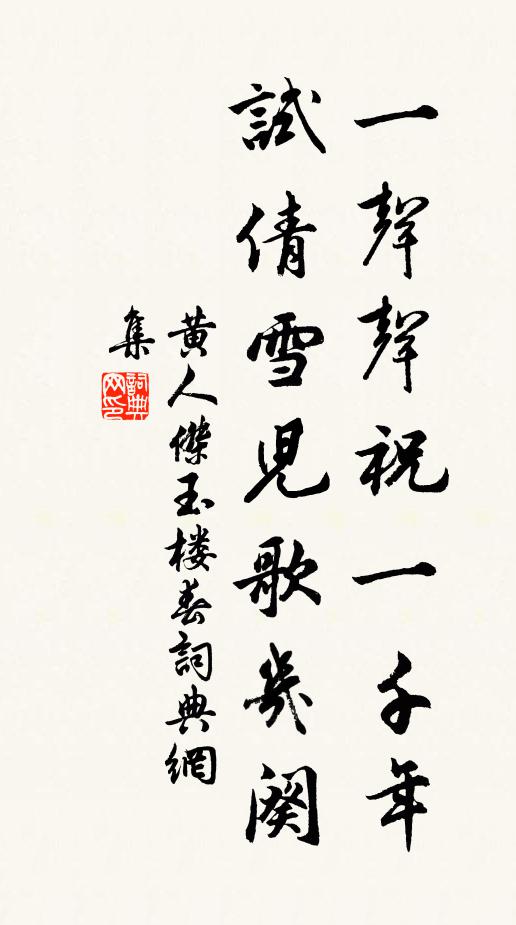 一聲聲祝一千年
試倩雪児歌幾闋
黄人傑玉楼春詞典網
集
詞典
网印